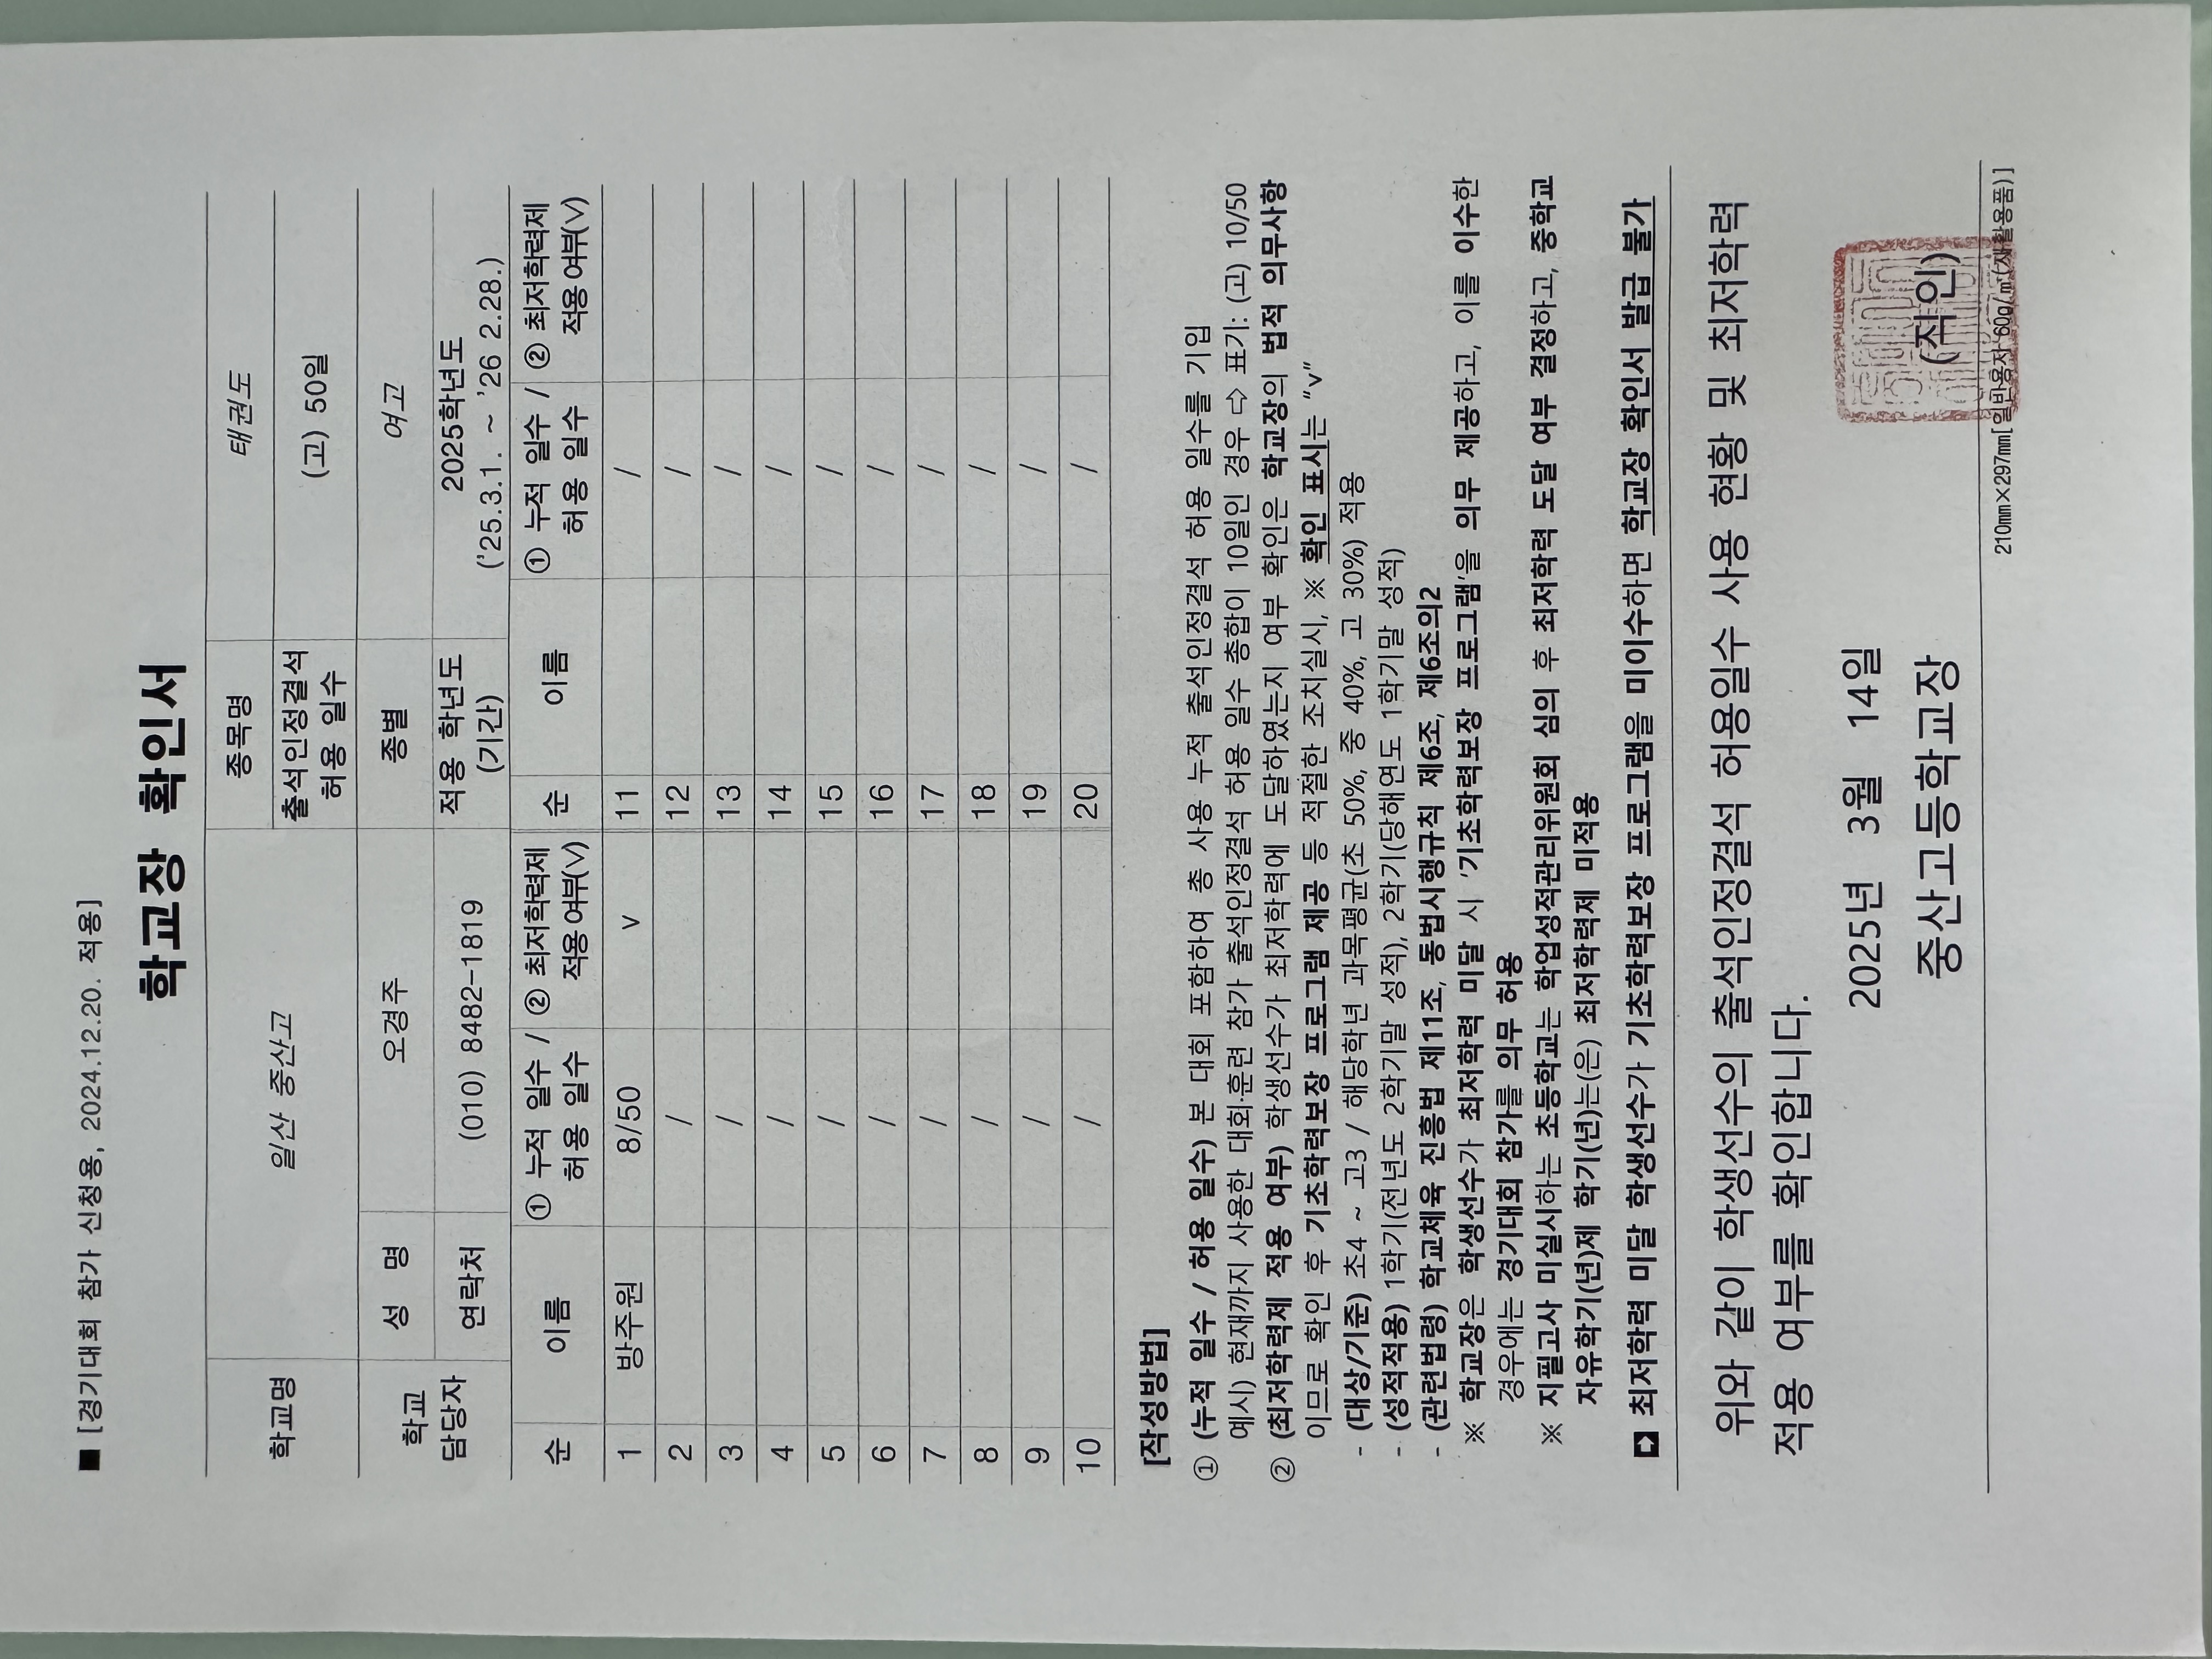 ■ [경기대회 참가 신청용, 2024.12.20. 적용]
학교장 확인서
학교명 일산 중산고 종목명 태권도
출석인정결석 허용 일수 (고) 50일
학교 담당자 성 명 오경주 종별 여고
연락처 (010) 8482-1819 적용 학년도 (기간) 2025학년도 ('25.3.1. ~ '26 2.28.)
순 이름 ① 누적 일수 / 허용 일수 ② 최저학력제 적용여부(∨) 순 이름 ① 누적 일수 / 허용 일수 ② 최저학력제 적용여부(∨)
1 방주원 8/50 ∨ 11 /
2 / 12 /
3 / 13 /
4 / 14 /
5 / 15 /
6 / 16 /
7 / 17 /
8 / 18 /
9 / 19 /
10 / 20 /
[작성방법]
① (누적 일수 / 허용 일수) 본 대회 포함하여 총 사용 누적 출석인정결석 허용 일수를 기입
예시) 현재까지 사용한 대회·훈련 참가 출석인정결석 허용 일수 총합이 10일인 경우 ⇨ 표기: (고) 10/50
② (최저학력제 적용 여부) 학생선수가 최저학력에 도달하였는지 여부 확인은 학교장의 법적 의무사항
이므로 확인 후 기초학력보장 프로그램 제공 등 적절한 조치실시, ※ 확인 표시는 "∨"
- (대상/기준) 초4 ~ 고3 / 해당학년 과목평균(초 50%, 중 40%, 고 30%) 적용
- (성적적용) 1학기(전년도 2학기말 성적), 2학기(당해연도 1학기말 성적)
- (관련법령) 학교체육 진흥법 제11조, 동법시행규칙 제6조, 제6조의2
※ 학교장은 학생선수가 최저학력 미달 시 '기초학력보장 프로그램'을 의무 제공하고, 이를 이수한
경우에는 경기대회 참가를 의무 허용
※ 지필고사 미실시하는 초등학교는 학업성적관리위원회 심의 후 최저학력 도달 여부 결정하고, 중학교
자유학기(년)제 학기(년)는(은) 최저학력제 미적용
➡ 최저학력 미달 학생선수가 기초학력보장 프로그램을 미이수하면 학교장 확인서 발급 불가
위와 같이 학생선수의 출석인정결석 허용일수 사용 현황 및 최저학력
적용 여부를 확인합니다.
2025년 3월 14일
중산고등학교장 (직인)
210㎜×297㎜[일반용지 60g/㎡(재활용품)]